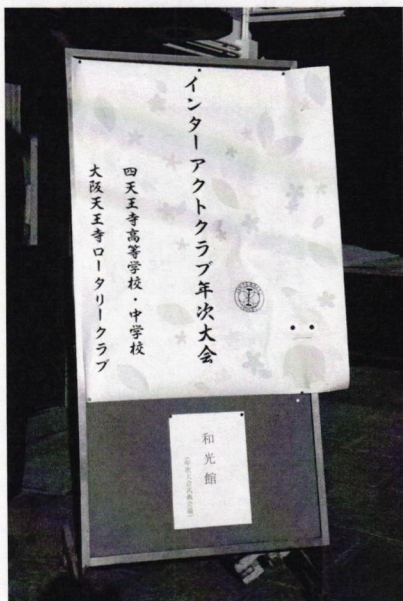 インターアクトクラブ年次大会
四天王寺高等学校・中学校
大阪天王寺ロータリークラブ
和光館
(年次大会式典会場)